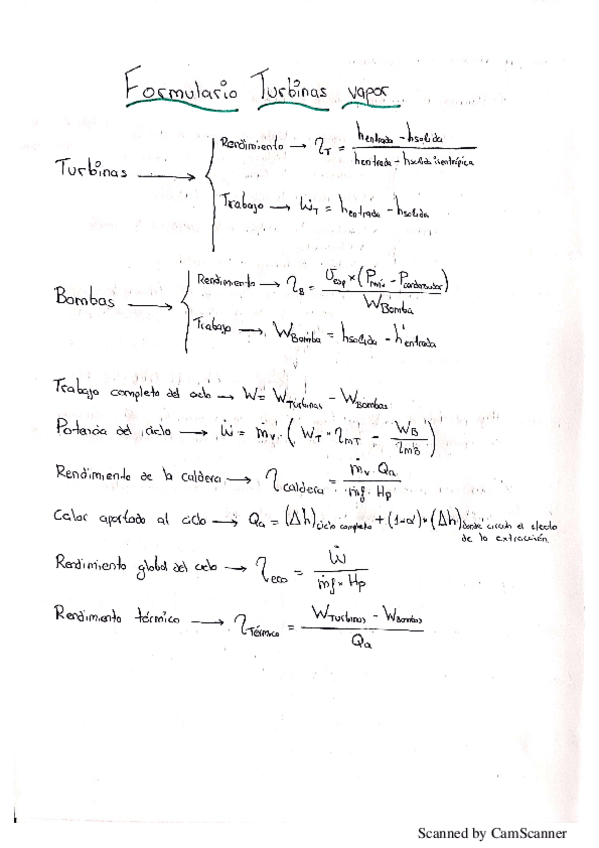 Formulario Turbinas vapor
Turbinas → Rendimiento → η_T = (h_entrada - h_salida) / (h_entrada - h_salida isentrópica)
Trabajo → Ẇ_T = h_entrada - h_salida
Bombas → Rendimiento → η_B = v_esp × (P_máx - P_condensador) / W_Bomba
Trabajo → W_Bomba = h_salida - h_entrada
Trabajo completo del ciclo → W = W_Turbinas - W_Bombas
Potencia del ciclo → Ẇ = ṁ_v · (W_T · η_mT - W_B / η_mB)
Rendimiento de la caldera → η_caldera = ṁ_v · Q_a / ṁ_f · H_p
Calor aportado al ciclo → Q_a = (Δh)_ciclo completo + (1-α) × (Δh)_donde circula el efecto
de la extracción
Rendimiento global del ciclo → η_eco = Ẇ / ṁ_f × H_p
Rendimiento térmico → η_Térmico = (W_Turbinas - W_Bombas) / Q_a
Scanned by CamScanner